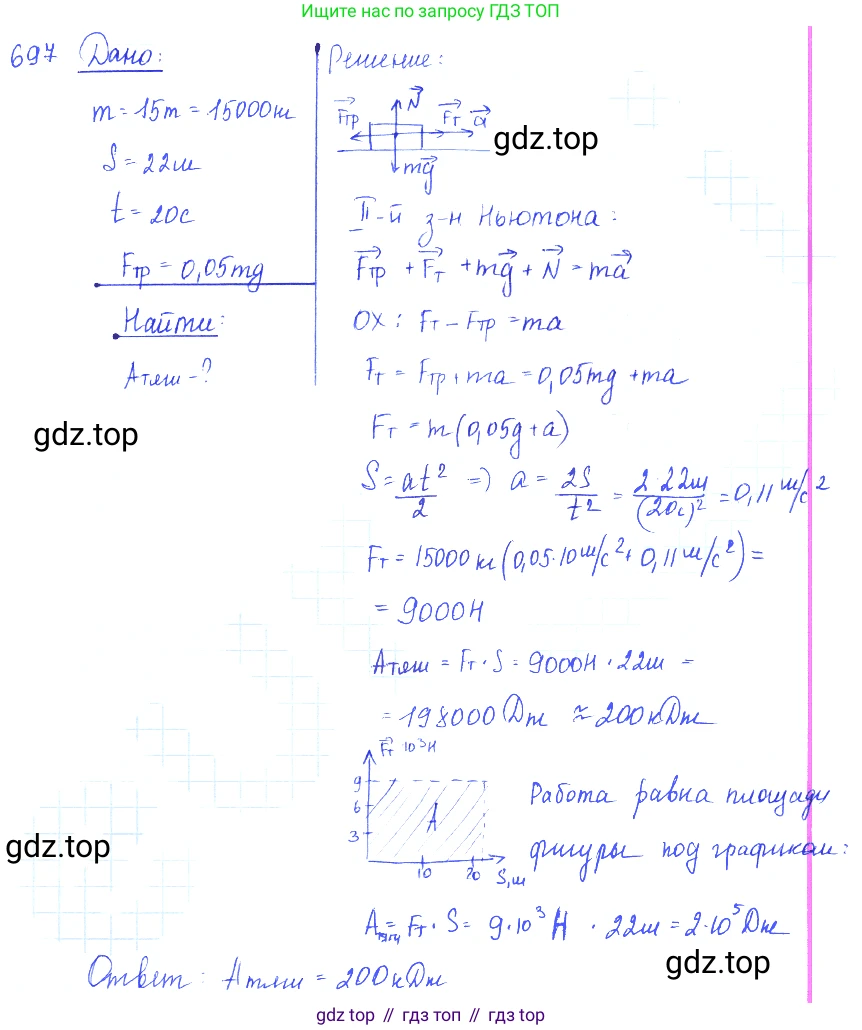 Ищите нас по запросу ГДЗ ТОП
697 Дано:
m = 15т = 15000кг
S = 22м
t = 20с
Fтр = 0,05mg
Найти:
Aтяги - ?
Решение:
N
Fтр Fт a
mg
gdz.top
II-й з-н Ньютона:
Fтр + Fт + mg + N = ma
OX: Fт - Fтр = ma
Fт = Fтр + ma = 0,05mg + ma
gdz.top
Fт = m(0,05g + a)
S = at²/2 => a = 2S/t² = 2·22м/(20с)² = 0,11 м/с²
Fт = 15000 кг (0,05·10 м/с² + 0,11 м/с²) =
= 9000Н
Aтяги = Fт · S = 9000Н · 22м =
= 198000 Дж ≈ 200кДж
Fт 10³Н
9
6
3
A
10 20 S, м
Работа равна площади
фигуры под графиком:
gdz.top
Aтяги = Fт · S = 9·10³ Н · 22м = 2·10⁵ Дж
gdz.top
Ответ: Aтяги = 200кДж
gdz top // гдз топ // gdz top